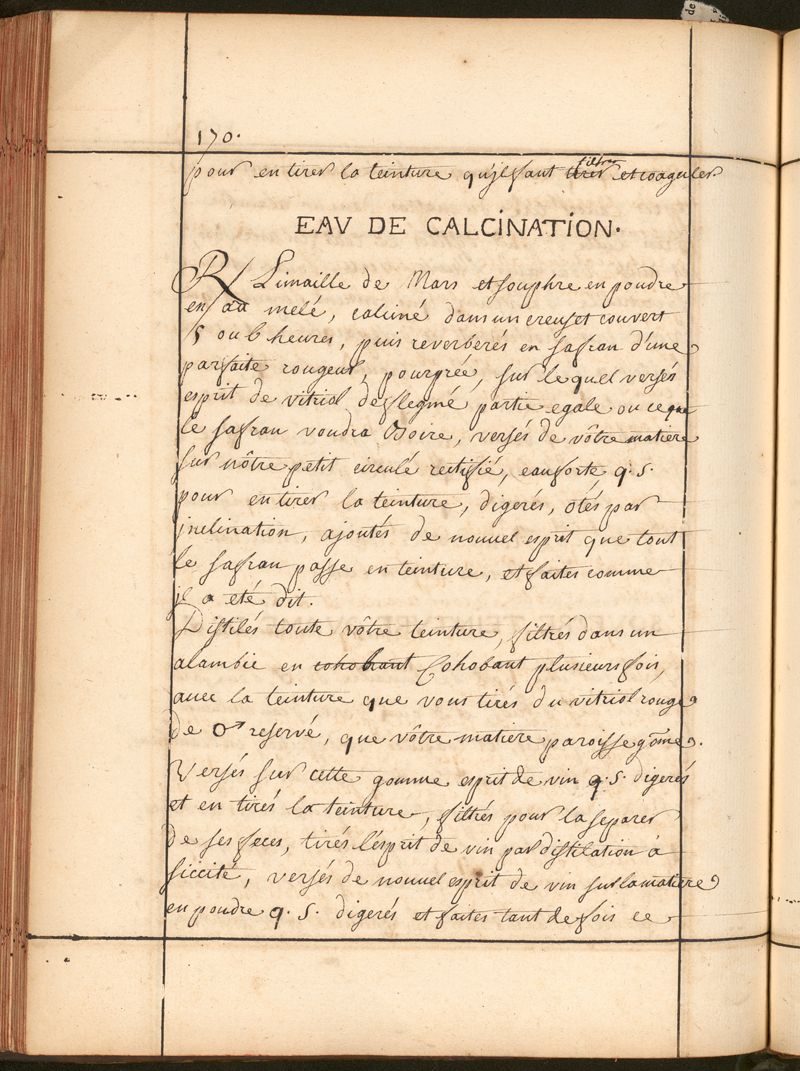 170.
pour en tirer la teinture qu'jl faut tirer filtrer et coaguler.
EAV DE CALCINATION.
℞ Limaille de Mars et souphre en poudre
en aa melé, calciné dans un creuset couvert
5 ou 6 heures, puis reverberés en safran d'une
parfaite rougeur, pourprée, sur lequel versés
esprit de vitriol deflegmé partie egale ou ce que
le safran voudra Boire, versés de vôtre matiere
sur nôtre petit circulé rectifié, eau forte q. s.
pour en tirer la teinture, digerés, otés par
jnclination, ajoutés de nouuel esprit que tout
le safran passe en teinture, et faites comme
jl a eté dit.
Distilés toute vôtre teinture, filtrés dans un
alambic en cohobant Cohobant plusieurs fois,
auec la teinture que vous tirés du vitriol rouge
de ♂ reservé, que vôtre matiere paroisse gõme.
Versés sur cette gomme esprit de vin q. s. digerés
et en tirés la teinture, filtrés pour la separer
de ses feces, tirés l'esprit de vin par distilation à
siccité, versés de nouuel esprit de vin sur la matiere
en poudre q. s. digerés et faites tant de fois ce